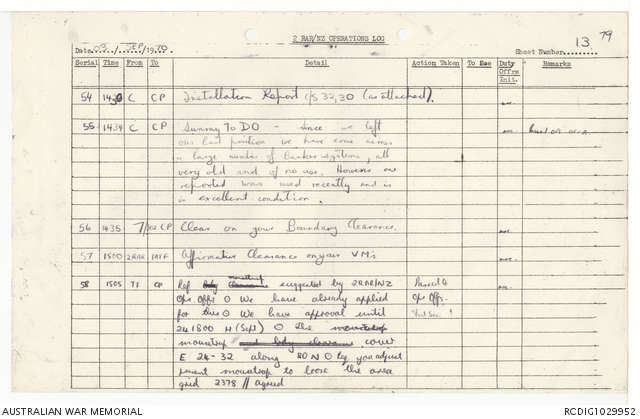 2 RAR/NZ OPERATIONS LOG
Date 03 / SEP / 1970 Sheet Number 13 79
Serial Time From To Detail Action Taken To See Duty Offrs Init. Remarks
54 1430 C CP Installation Report C/S 32,30 (as attached).
55 1434 C CP Sunray To DO - since we left
our last position we have come across
a large number of Bunker systems, all
very old and of no use. However one
reported was used recently and is
in excellent condition.
56 1435 7/ CP Clear on your Boundary Clearance.
57 1500 2RAR 1ATF Affirmative Clearance on your VM's
58 1505 TI CP Ref mousetrap suggested by 2RAR/NZ Passed to
Ops Offr O We have already applied Ops Offr.
for this O We have approval until
241800 H (Sept) O the mousetrap
mousetrap and bdy clearance cover
E 24-32 along RD N O Rq you adjust
present mousetrap to leave the area
grid 2378 // agreed
AUSTRALIAN WAR MEMORIAL RCDIG1029952